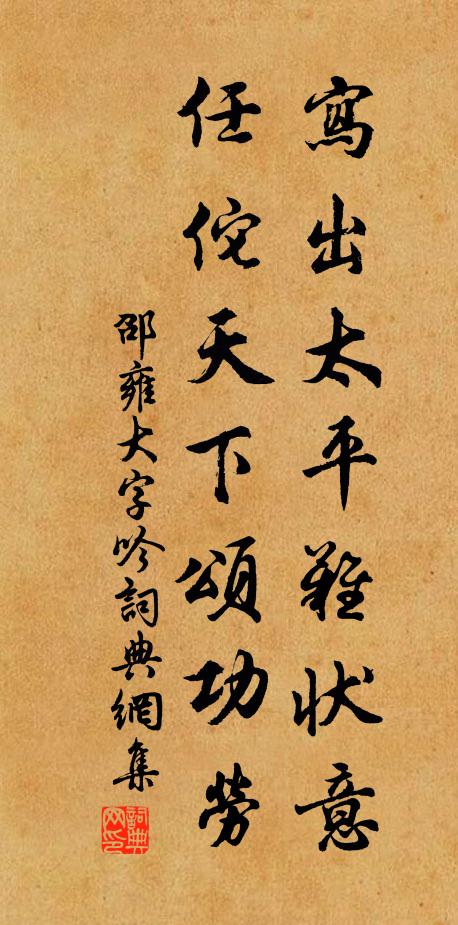 寫出太平難狀意
任佗天下頌功勞
邵雍大字吟詞典網集
詞典
网印